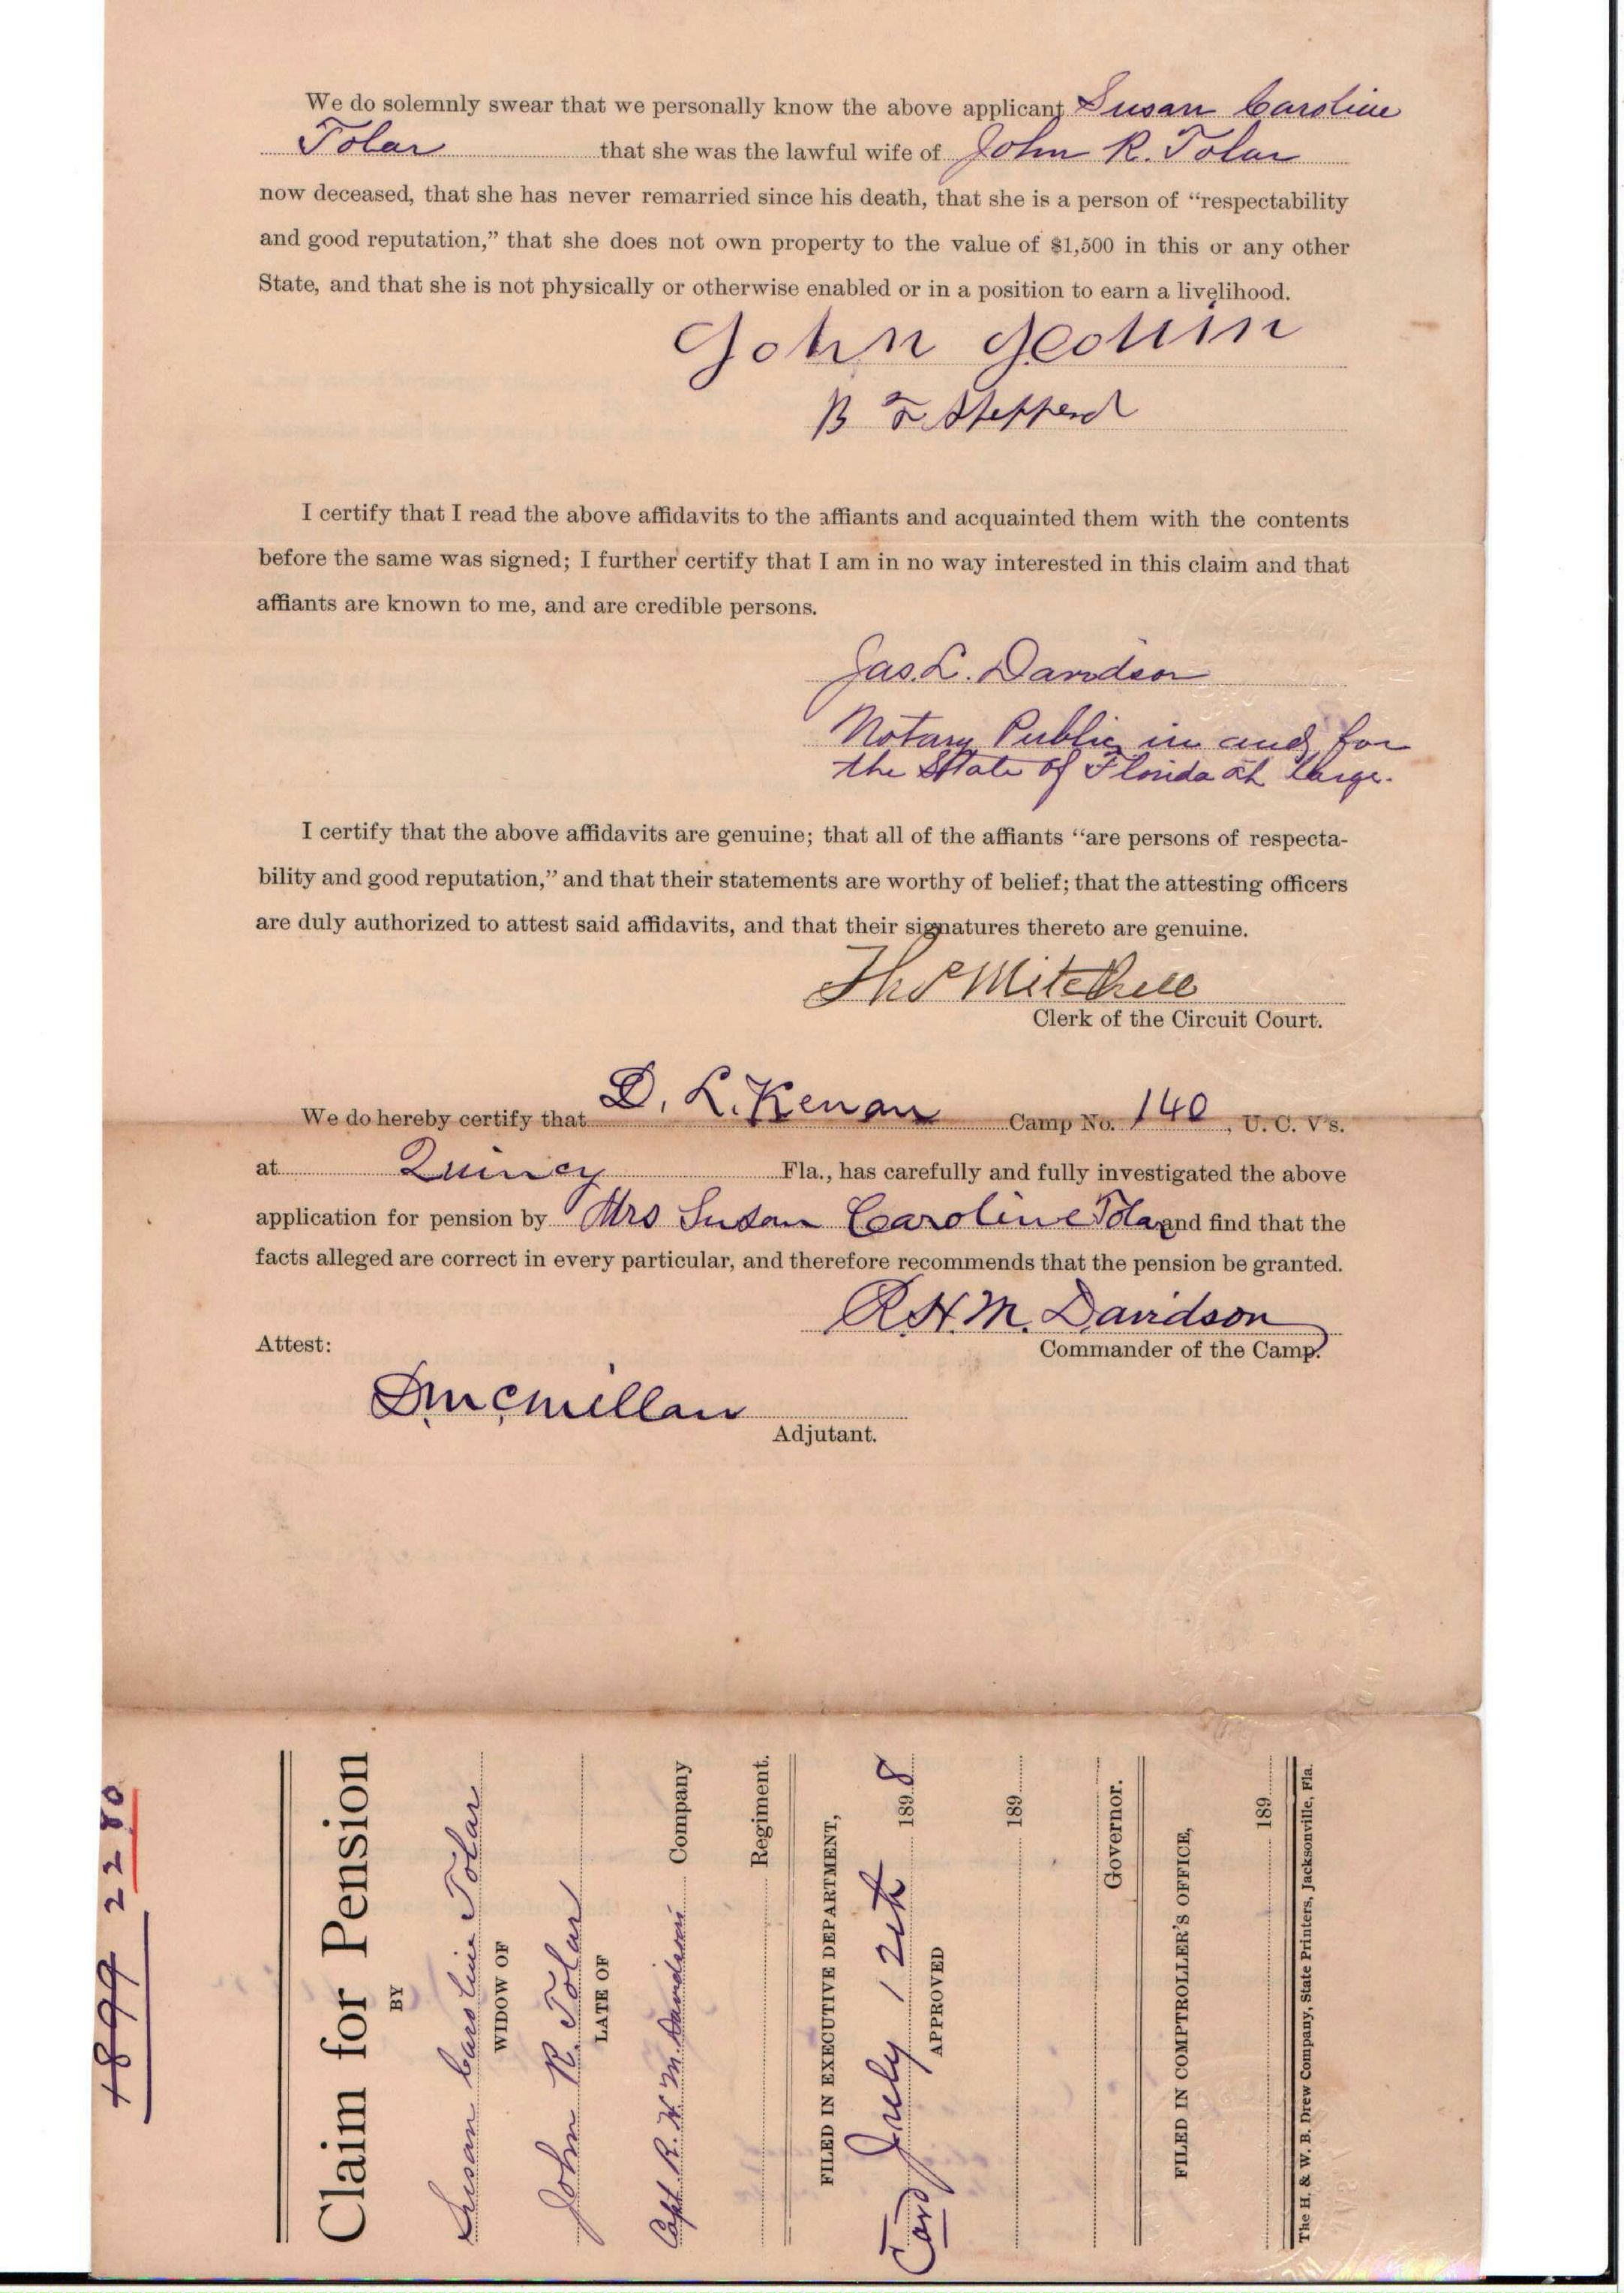 We do solemnly swear that we personally know the above applicant Susan Caroline
Tolar that she was the lawful wife of John R. Tolar
now deceased, that she has never remarried since his death, that she is a person of “respectability
and good reputation,” that she does not own property to the value of $1,500 in this or any other
State, and that she is not physically or otherwise enabled or in a position to earn a livelihood.
John
B F Shepperd
I certify that I read the above affidavits to the affiants and acquainted them with the contents
before the same was signed; I further certify that I am in no way interested in this claim and that
affiants are known to me, and are credible persons.
Jas. L. Davidson
Notary Public in and for
the State of Florida at large.
I certify that the above affidavits are genuine; that all of the affiants “are persons of respecta-
bility and good reputation,” and that their statements are worthy of belief; that the attesting officers
are duly authorized to attest said affidavits, and that their signatures thereto are genuine.
Mitchell
Clerk of the Circuit Court.
We do hereby certify that D. L. Kenan Camp No. 140, U. C. V's.
at Quincy Fla., has carefully and fully investigated the above
application for pension by Mrs Susan Caroline Tolar and find that the
facts alleged are correct in every particular, and therefore recommends that the pension be granted.
R. H. M. Davidson
Commander of the Camp.
Attest:
D. McMillan
Adjutant.
1899 2280
Claim for Pension
BY
Susan Caroline Tolar
WIDOW OF
John R. Tolar
LATE OF
Capt R. H M. Davidson Company
Regiment.
FILED IN EXECUTIVE DEPARTMENT,
July 12th 1898
Card
APPROVED
189
Governor.
FILED IN COMPTROLLER'S OFFICE,
189
The H. & W. B. Drew Company, State Printers, Jacksonville, Fla.